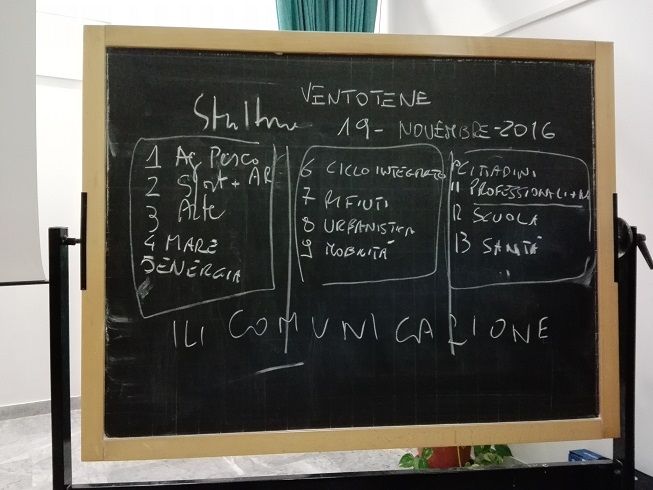 VENTOTENE
19- NOVEMBRE-2016
1 Ag Pesco
2 Sport + AR
3 Arte
4 MARE
5 ENERGIA
6 CICLO INTEGRATO
7 RIFIUTI
8 URBANISTICA
9 MOBILITÀ
CITTADINI
11 PROFESSIONALI
12 SCUOLA
13 SANITÀ
COMUNICAZIONE